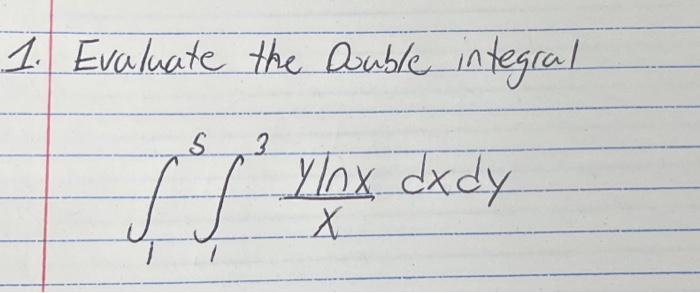 1. Evaluate the Double integral
∫₁⁵ ∫₁³ ylnx/x dxdy